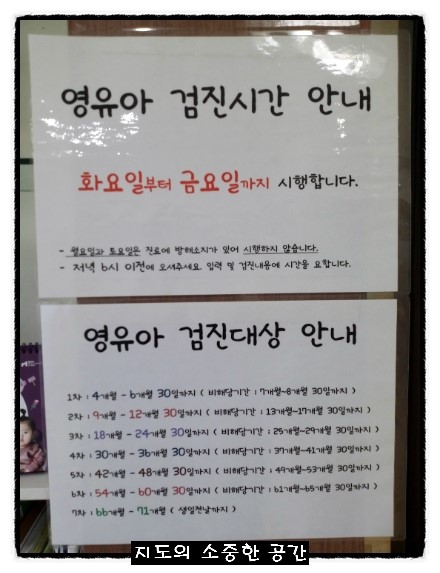 영유아 검진시간 안내
화요일부터 금요일까지 시행합니다.
- 월요일과 토요일은 진료에 방해소지가 있어 시행하지 않습니다.
- 저녁 6시 이전에 오셔주세요. 입력 및 검진내용에 시간을 요합니다.
영유아 검진대상 안내
1차 : 4개월 - 6개월 30일까지 ( 비해당기간 : 7개월~8개월 30일까지 )
2차 : 9개월 - 12개월 30일까지 ( 비해당기간 : 13개월~17개월 30일까지 )
3차 : 18개월 - 24개월 30일까지 ( 비해당기간 : 25개월~29개월 30일까지 )
4차 : 30개월 - 36개월 30일까지 ( 비해당기간 : 37개월~41개월 30일까지 )
5차 : 42개월 - 48개월 30일까지 ( 비해당기간 : 49개월~53개월 30일까지 )
6차 : 54개월 - 60개월 30일까지 ( 비해당기간 : 61개월~65개월 30일까지 )
7차 : 66개월 - 71개월 ( 생일전날까지 )
지도의 소중한 공간